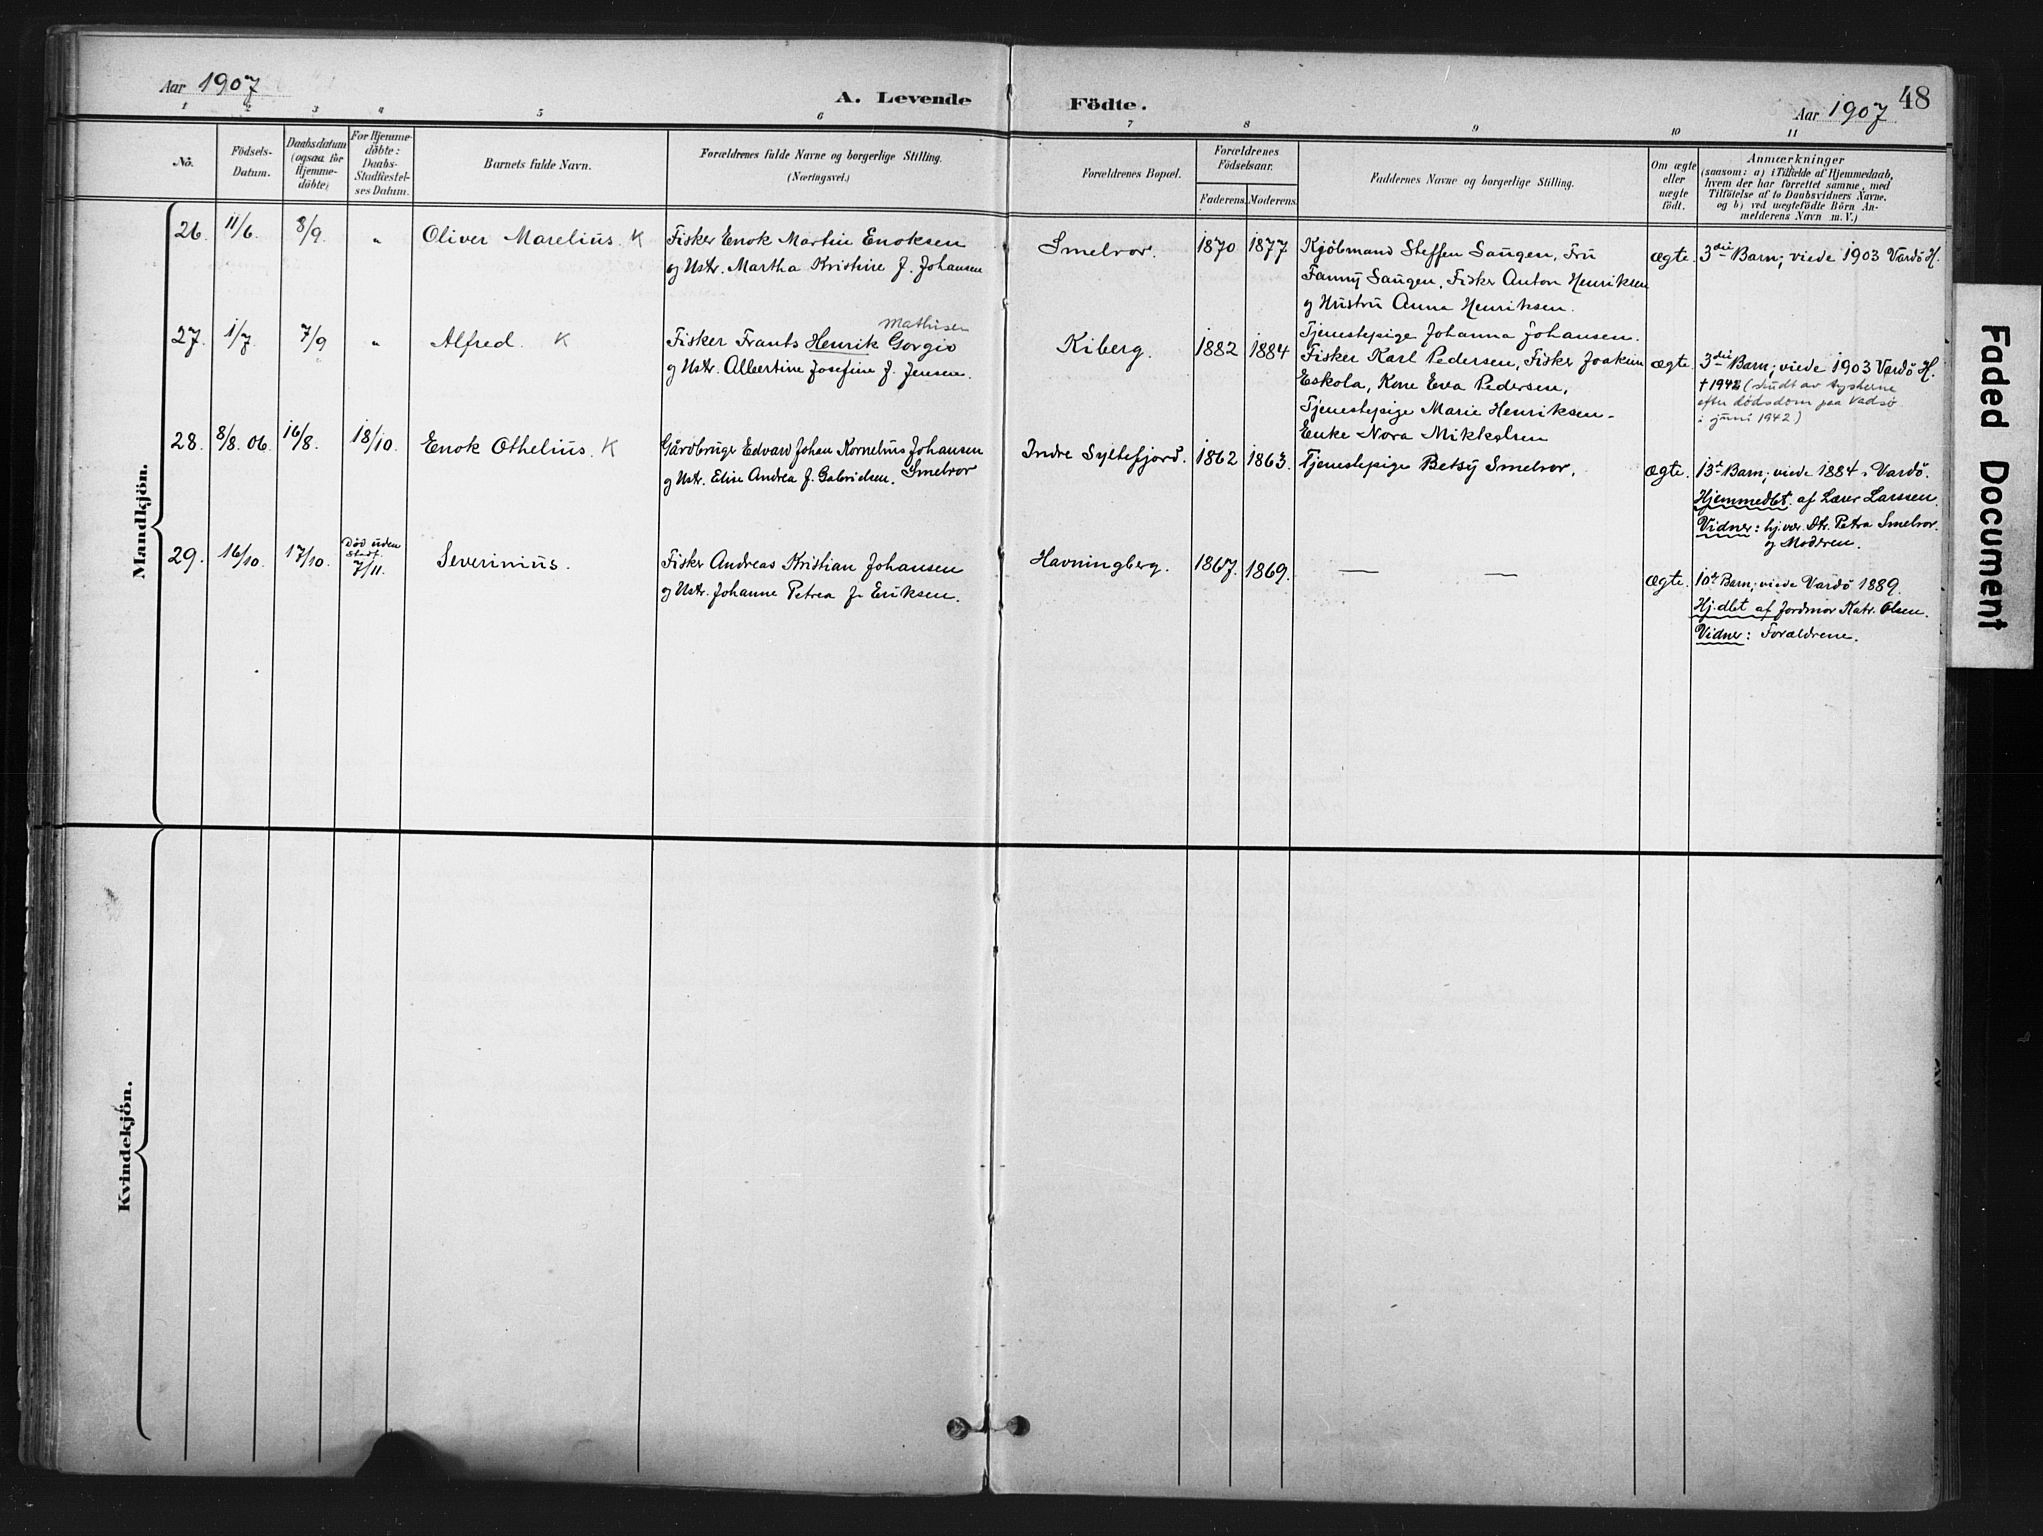 Aar 1907
A. Levende
Födte.
Aar 1907
48
1 2 3 4 5 6 7 8 9 10 11
No.
Födsels-
Datum.
Daabsdatum
(ogsaa for
Hjemme-
döbte)
For Hjemme-
döbte:
Daabs-
Stadfæstel-
ses Datum.
Barnets fulde Navn.
Forældrenes fulde Navne og borgerlige Stilling.
(Næringsvei.)
Forældrenes Bopæl.
Forældrenes
Födselsaar.
Faderens. Moderens.
Faddernes Navne og borgerlige Stilling.
Om ægte
eller
uægte
födt.
Anmærkninger
(saasom: a) i Tilfælde af Hjemmedaab,
hvem der har forrettet samme, med
Tilföielse af to Daabsvidners Navne.
og b) ved uægtefödte Börn An-
melderens Navn m. V.)
Mandkjön.
26. 11/6. 8/9. „ Oliver Marelius. K
Fisker Enok Martin Enoksen
og Ustr. Martha Kristine f. Johansen
Smelror. 1870 1877
Kjøbmand Steffen Saugen, Fru
Fanny Saugen, Fisker Anton Henriksen
og Hustru Anna Henriksen.
Tjenestepige Johanna Johansen.
ægte. 3die Barn; viede 1903 Vardö H.
27. 1/7. 7/9 „ Alfred. K
Mathisen
Fisker Frants Henrik Gorgio
og Ustr. Albertine Josefine f. Jensen.
Kiberg. 1882 1884
Fisker Karl Pedersen, Fisker Joakim
Eskola, Kone Eva Pedersen,
Tjenestepige Marie Henriksen -
Enke Nora Mikkelsen
ægte. 3die Barn; viede 1903 Vardö H.
† 1942 (skudt av tyskerne
efter dødsdom paa Vadsø
i juni 1942)
28. 8/8. 06. 16/8. 18/10. Enok Othelius. K
Gårdbruger Edvard Johan Kornelius Johansen
og Ustr. Elise Andrea f. Gabrielsen. Smelror
Indre Syltefjord. 1862 1863.
Tjenestepige Betsy Smelror.
ægte. 13de Barn; viede 1884 i Vardö.
Hjemmedbt. af Lærer Larssen.
Vidner: hj.vær. Dtr. Petra Smelror.
og Moderen.
29. 16/10. 17/10.
Död uden
stadf.
7/11.
Severinius.
Fisker Andreas Kristian Johansen
og Ustr. Johanne Petrea f. Eriksen.
Havningberg. 1867. 1869. — —
ægte. 10de Barn; viede Vardö 1889.
Hj.dbt af Jordmor Katr. Olsen.
Vidner: Forældrene.
Kvindekjön.
Faded Document